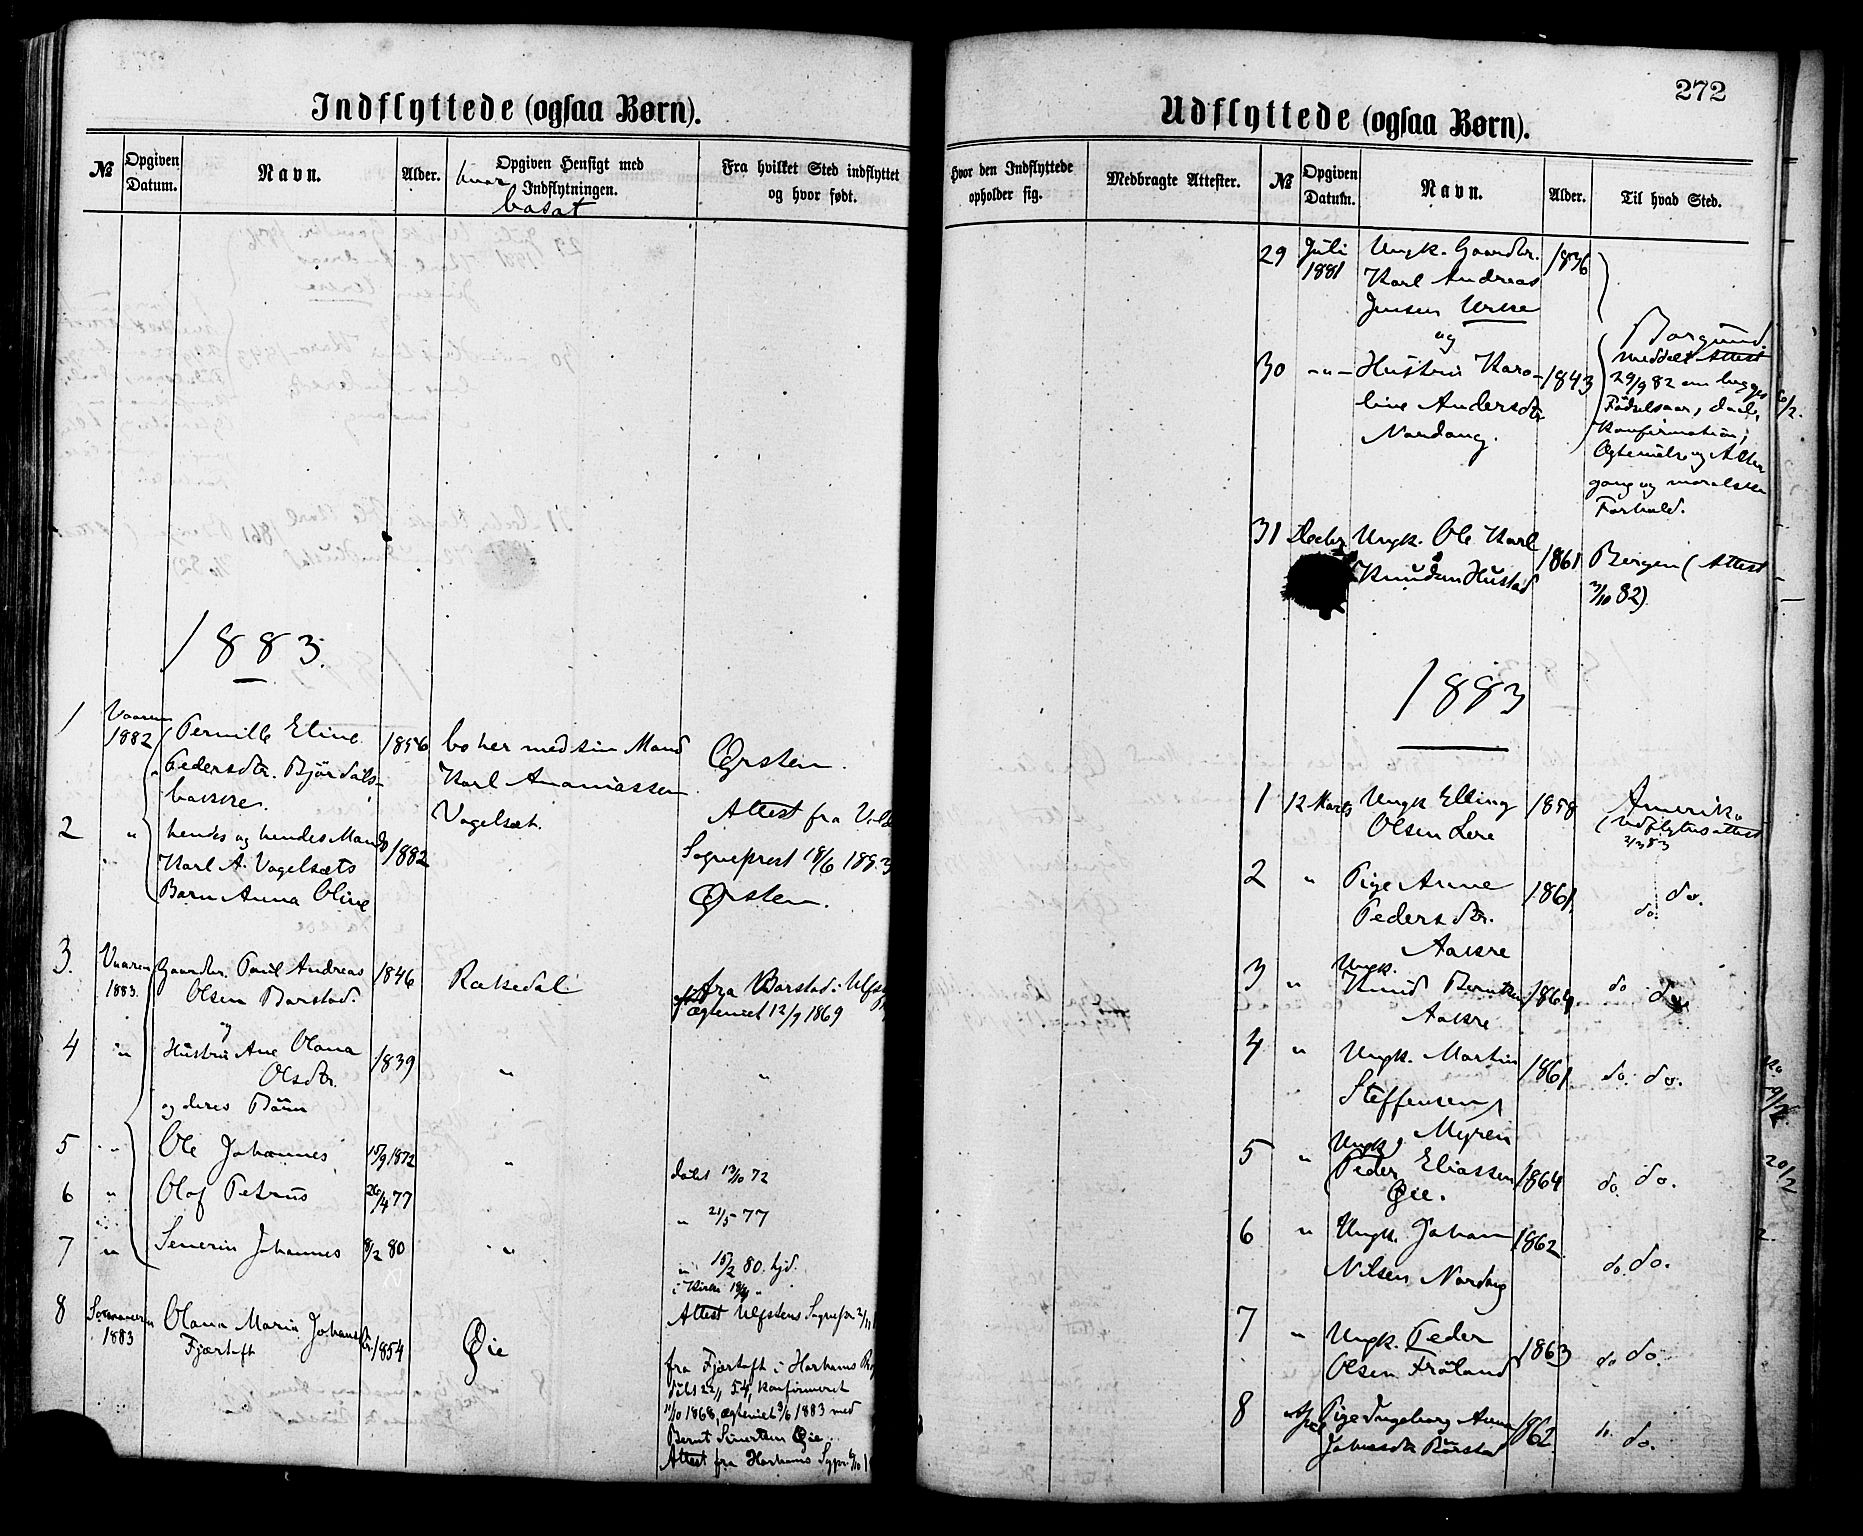 Indflyttede (ogsaa Børn).
№
Opgiven Datum.
Navn.
Alder.
Opgiven Hensigt med Indflytningen.
hvor bosat
Fra hvilket Sted indflyttet og hvor født.
1883.
1 Vaaren 1882 Pernille Eline 1856 bo her med sin Mand Ørsten.
Pedersdtr. Bjørdals- Karl Ananiassen
bakke. Vagelsæt. Attest fra
2 " hendes og hendes Mands 1882 Sogneprest 18/6 1883
Karl A. Vagelsæts
Barn Anna Oline Ørsten.
3. Vaaren 1883. Gaardbr. Paul Andreas 1846 fra Barstad i
Olsen Barstad. ægteviet 12/9 1869
og
4 " Hustru Ane Olana 1839 " "
Olsdtr.
og deres Børn
5 " Ole Johannes 15/9 1872 " døbt 13/10 72
6 " Olaf Petrus 26/4 77 " 21/5 77
7 " Severin Johannes 8/2 80 " " 15/2 80. hjd.
i Kirke
Attest Ulfstens
8 Sommeren 1883 Olana Maria 1854 Øie
Fjærtoft fra Fjærtoft i Harhams
døbt
11/10 1868, ægteviet 3/6 1883 med
Bernt Øie.
Attest fra Harhams
272
Udflyttede (ogsaa Børn).
Hvor den Indflyttede opholder sig.
Medbragte Attester.
№
Opgiven Datum.
Navn.
Alder.
Til hvad Sted.
29 Juli 1881 Ungk. Gaardbr. 1836
Karl Andreas
Jensen Urke
og
Borgund.
meddelt Attest
30 -"- Hustru Karo- 1843 29/9 82 om begges
line Andersdtr Fødselsaar, daab,
Nordang. Konfirmation,
Ægtevielse og Alter
gang og moralske
Forhold.
31 Decbr. Ungk. Ole Karl 1861 Bergen (Attest
Knudsen Hustad 3/10 82).
1883
1 12 Marts Ungk Elling 1858 Amerika
Olsen Lere (udflytnsattest
2/3 83
2 " Pige Anne 1861 do. do.
Pedersdtr.
Aakre
3 " Ungk. Knud 1864 do do.
Aakre
4 " Ungk. Martin 1861 do. do.
Steffensen
Myren
5 " Ungk. Peder Eliassen 1864 do. do.
Øie.
6 " Ungk. Johan 1862 do. do.
Nilsen Nordang
7 " Ungk. Peder 1863 do do.
Olsen Frøland
8 April Pige Ingeborg Anna 1862 do. do.